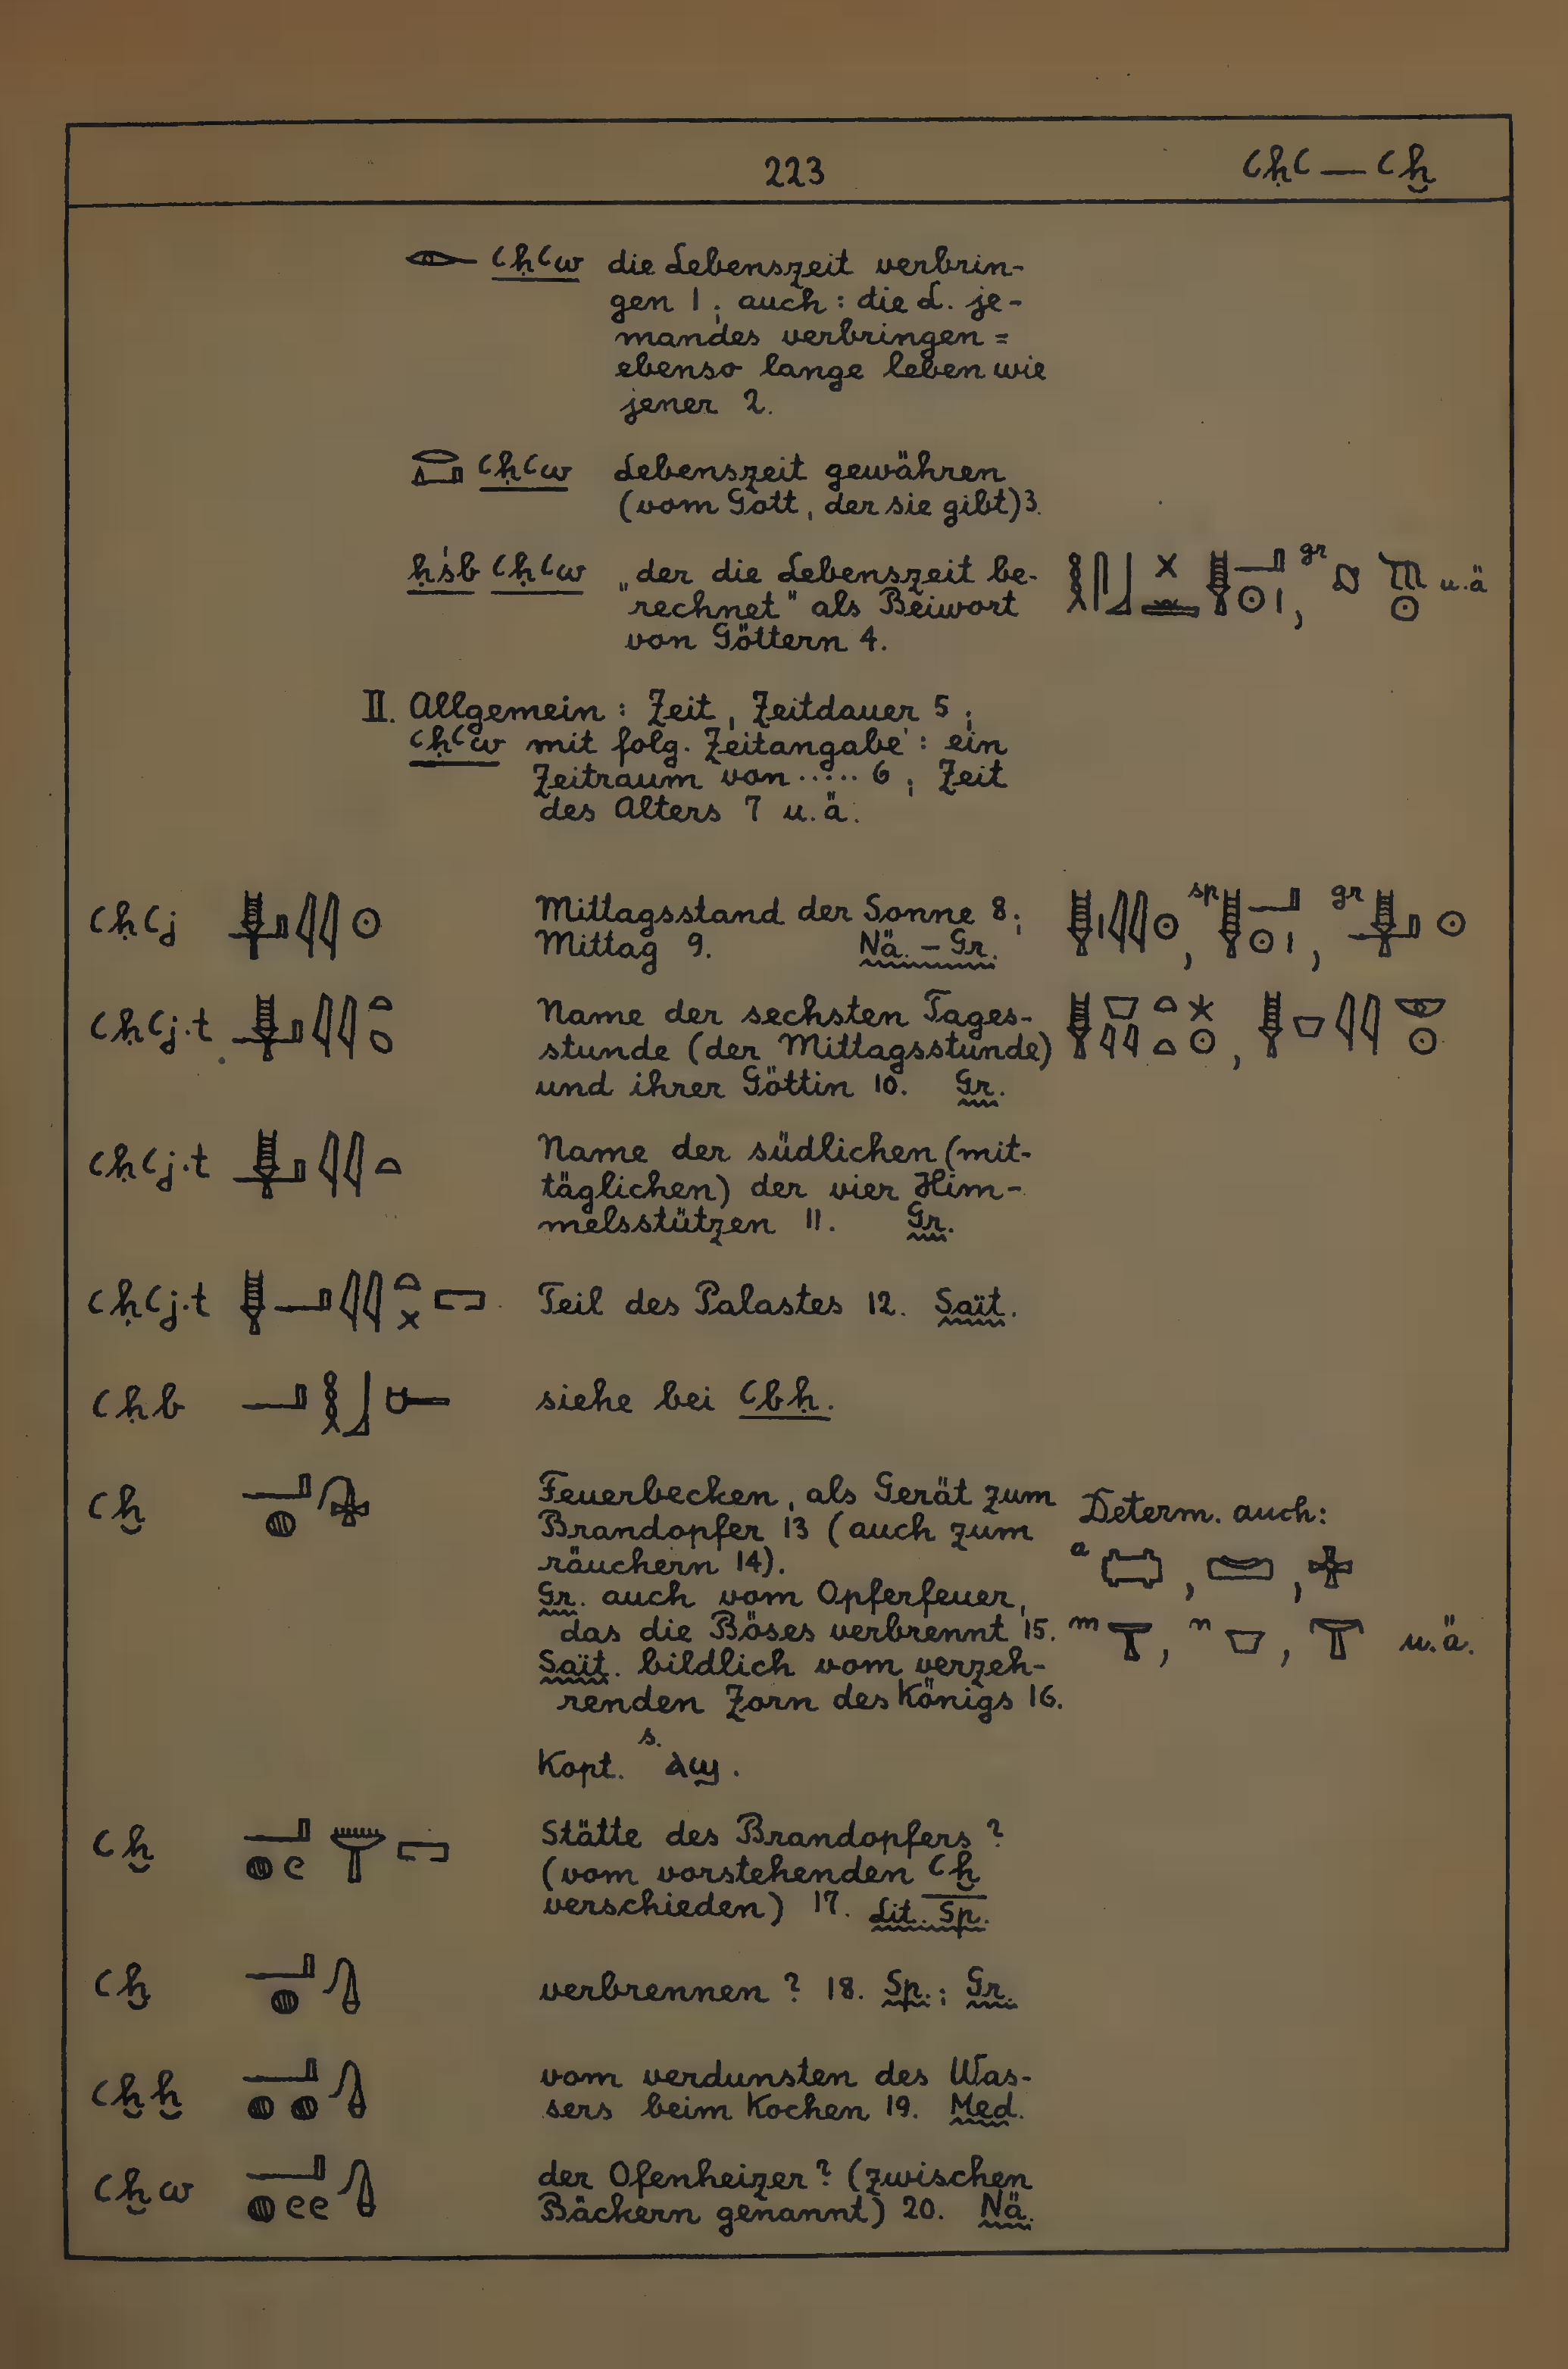 223
ꜥḥꜥ — ꜥḫ
ꜥḥꜥw die Lebenszeit verbrin-
gen 1; auch: die L. je-
mandes verbringen =
ebenso lange leben wie
jener 2.
ꜥḥꜥw Lebenszeit gewähren
(vom Gott, der sie gibt) 3.
ḥśb ꜥḥꜥw „der die Lebenszeit be- gr u.ä
rechnet" als Beiwort
von Göttern 4.
II. Allgemein: Zeit, Zeitdauer 5;
ꜥḥꜥw mit folg. Zeitangabe: ein
Zeitraum von ..... 6; Zeit
des Alters 7 u.ä.
ꜥḥꜥj Mittagsstand der Sonne 8; sp gr
Mittag 9. Nä. – Gr.
ꜥḥꜥj.t Name der sechsten Tages-
stunde (der Mittagsstunde)
und ihrer Göttin 10. Gr.
ꜥḥꜥj.t Name der südlichen (mit-
täglichen) der vier Him-
melsstützen 11. Gr.
ꜥḥꜥj.t Teil des Palastes 12. Saït.
ꜥḥb siehe bei ꜥbḥ.
ꜥḫ Feuerbecken, als Gerät zum
Brandopfer 13 (auch zum
räuchern 14).
Gr. auch vom Opferfeuer,
das die Böses verbrennt 15.
Saït. bildlich vom verzeh-
renden Zorn des Königs 16.
Kopt. s. ⲁϣ.
Determ. auch:
a
m n u.ä.
ꜥḫ Stätte des Brandopfers?
(vom vorstehenden ꜥḫ
verschieden) 17. Lit. Sp.
ꜥḫ verbrennen? 18. Sp.; Gr.
ꜥḫḫ vom verdunsten des Was-
sers beim Kochen 19. Med.
ꜥḫw der Ofenheizer? (zwischen
Bäckern genannt) 20. Nä.